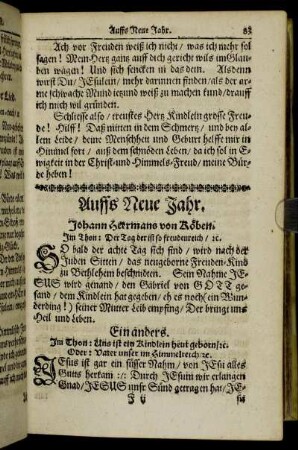 Auffs Neue Jahr. 83
Ach vor Freuden weiß ich nicht / was ich nicht sol
sagen! Mein Hertz gantz auff dich gericht wils im Glau-
ben wagen! Und sich sencken in das dein. Alsdenn
wirst Du / JEsulein / mehr darinnen finden / als der ar-
me schwache Mund itzund weiß zu machen kund / drauf
ich mich wil gründen.
Schliesse also / treustes Hertz Kindlein grosse Freu-
de! Hilff! Daß mitten in dem Schmertz / und bey al-
lem Leide / deine Menschheit und Geburt helffe mir in
Himmel fort / auß dem schnöden Leben / da ich sol in E-
wigkeit in der Christ-und Himmels-Freud / meine Bür-
de heben!
Auffs Neue Jahr.
Johann Heermans von Köben.
Im Thon: Der Tag der ist so freudenreich / ꝛc.
SO bald der achte Tag sich find / wird nach der
Juden Sitten / das neugeborne Freuden-Kind
zu Bethlehem beschnidten. Sein Nahme JE-
SUS wird genand / den Gabriel von GOTT ge-
sand / dem Kindlein hat gegeben / eh es noch (ein Wun-
derding!) seiner Mutter Leib empfing / Der bringt uns
Heil und Leben.
Ein anders.
Im Thon: Uns ist ein Kindlein heut geborn ꝛc.
Oder: Vater unser im Himmelreich ꝛc.
JEsus ist gar ein süsser Nahm / von JEsu alles
Guts herkam :/: Durch JEsum wir erlangen
Gnad / JESUS unsr Sünd getragen hat / JE-
F ij sus